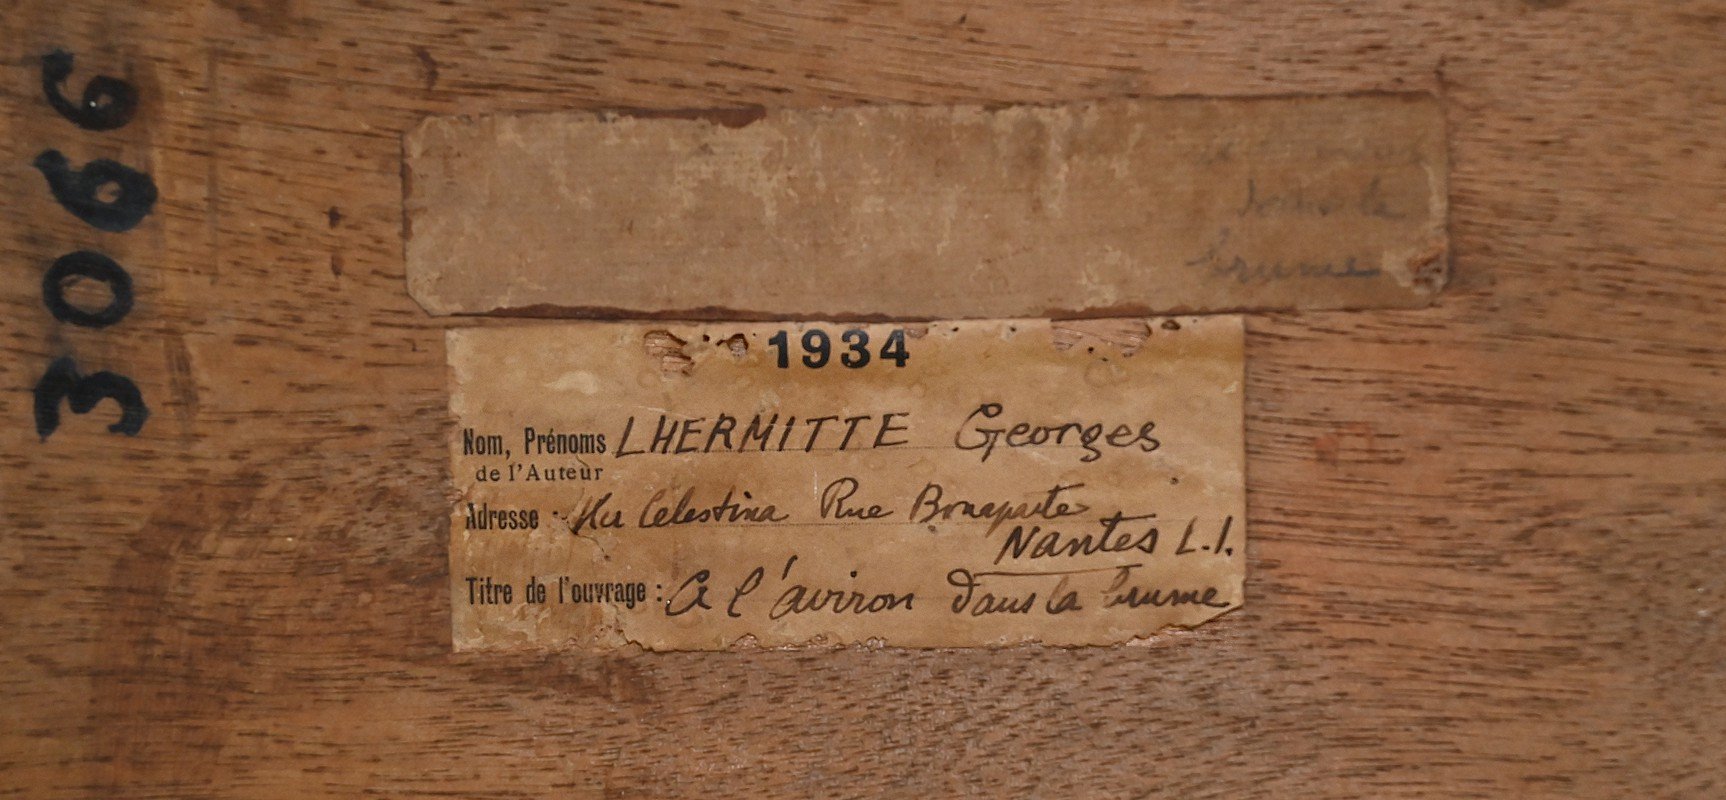 3066
dans la
brume
1934
Nom, Prénoms LHERMITTE Georges
de l'Auteur
Adresse : Celestina Rue Bonaparte
Nantes L.I.
Titre de l'ouvrage : A l'aviron dans la brume